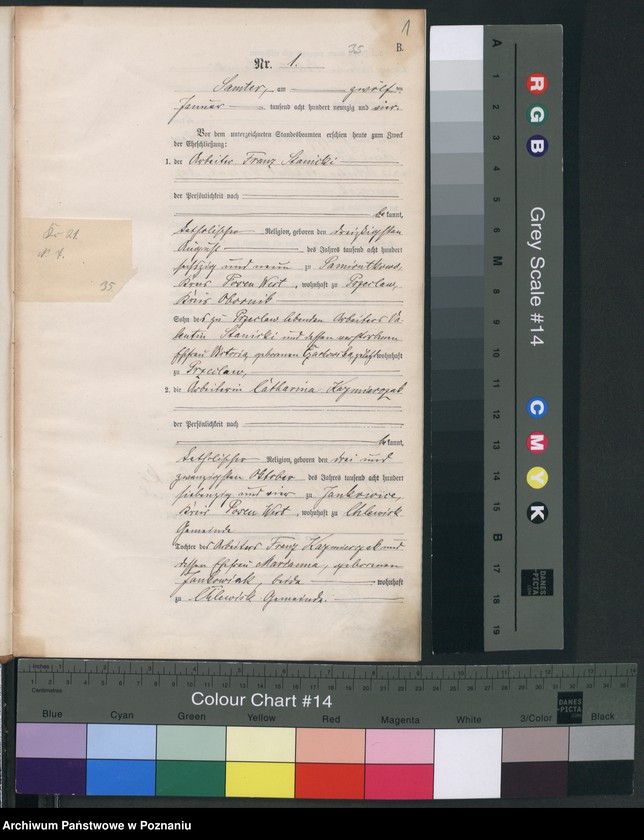 1
35
B.
Nr. 1.
Samter, am zwölften
Januar tausend acht hundert neunzig und vier.
Vor dem unterzeichneten Standesbeamten erschien heute zum Zweck
der Eheschließung:
1. der Arbeiter Franz Stanicki
der Persönlichkeit nach
bekannt,
katholischer Religion, geboren den dreißigsten
August des Jahres tausend acht hundert
sechszig und neun zu Pamiontkowo,
Kreis Posen West, wohnhaft zu Przeclaw,
Kreis Obornik
Sohn des zu Przeclaw lebenden Arbeiters Va-
lentin Stanicki und dessen verstorbenen
Ehefrau Victoria geborenen wohnhaft
zu Przeclaw,
2. die Arbeiterin Catharina Kazmierczak
der Persönlichkeit nach
bekannt,
katholischer Religion, geboren den drei und
zwanzigsten Oktober des Jahres tausend acht hundert
siebenzig und vier zu Jankowice,
Kreis Posen West, wohnhaft zu Chlewisk
Gemeinde
Tochter des Arbeiters Franz Kazmierczak und
dessen Ehefrau Marianna, geborenen
Jankowiak, beide wohnhaft
zu Chlewisk Gemeinde.
Nr 21
N. 1.
35
A 1 2 3 4 5 6 M 8 9 10 11 12 13 14 15 B 17 18 19
R
G
B
Grey Scale #14
C
M
Y
K
DANES
-PICTA
.COM
Inches
Centimetres
Colour Chart #14
DANES
-PICTA
.COM
Blue Cyan Green Yellow Red Magenta White 3/Color Black
Archiwum Państwowe w Poznaniu